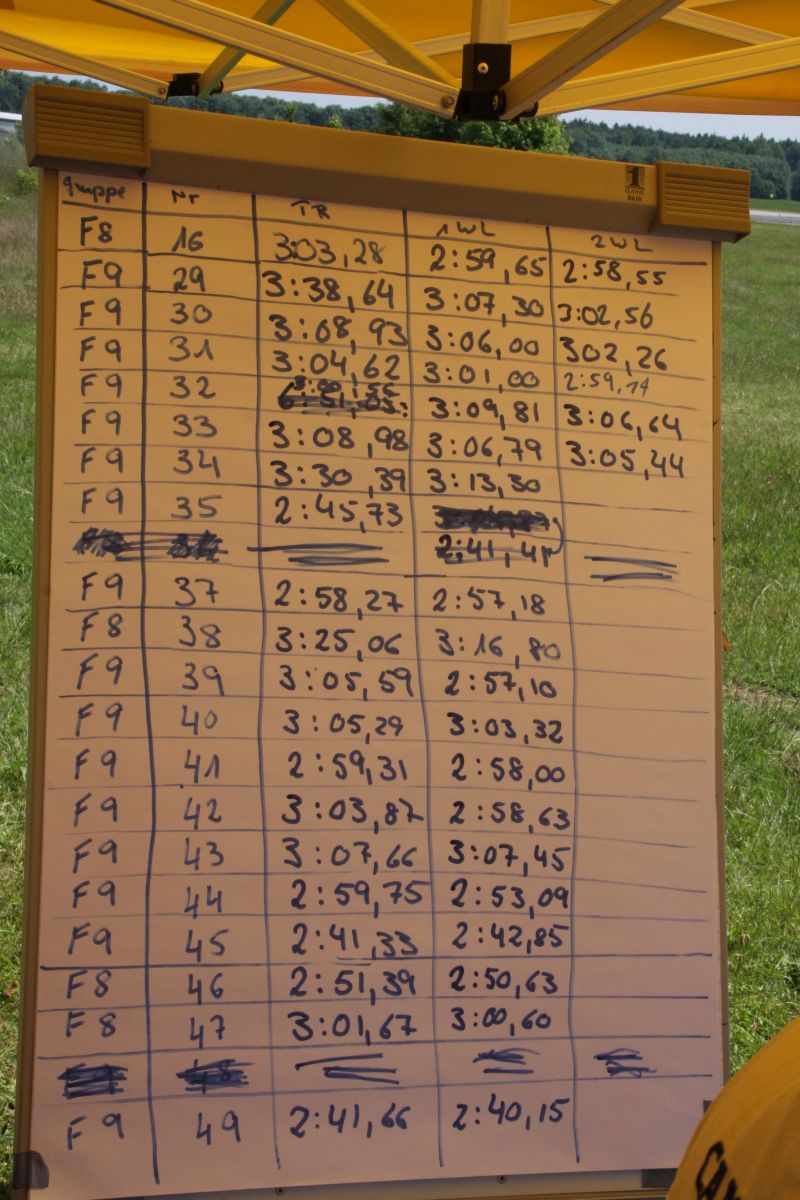 CLASSIC
8610
gruppe Nr TR 1WL 2WL
F8 16 3:03,28 2:59,65 2:58,55
F9 29 3:38,64 3:07,30 3:02,56
F9 30 3:08,93 3:06,00 302,26
F9 31 3:04,62 3:01,00 2:59,14
F9 32 3:09,81 3:06,64
F9 33 3:08,98 3:06,79 3:05,44
F9 34 3:30,39 3:13,30
F9 35 2:45,73
2:41,41
F9 37 2:58,27 2:57,18
F8 38 3:25,06 3:16,80
F9 39 3:05,59 2:57,10
F9 40 3:05,29 3:03,32
F9 41 2:59,31 2:58,00
F9 42 3:03,87 2:58,63
F9 43 3:07,66 3:07,45
F9 44 2:59,75 2:53,09
F9 45 2:41,33 2:42,85
F8 46 2:51,39 2:50,63
F8 47 3:01,67 3:00,60
F9 49 2:41,66 2:40,15